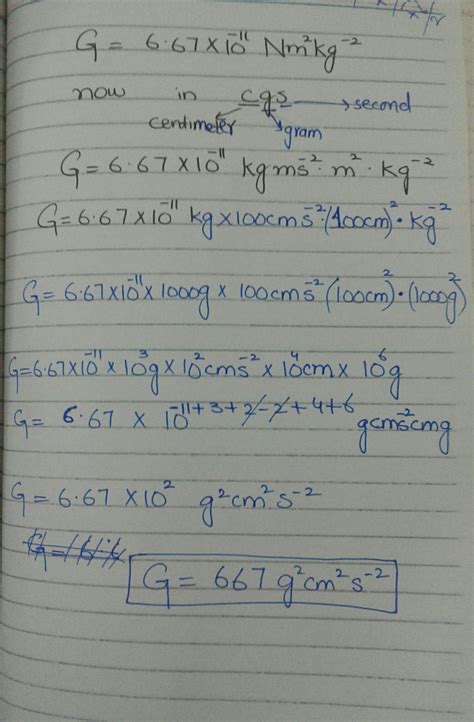 G = 6.67×10⁻¹¹ Nm²kg⁻²
now in cgs → second
centimeter gram
G = 6.67×10⁻¹¹ kgms⁻²·m²·kg⁻²
G = 6.67×10⁻¹¹ kg×100cms⁻²·(100cm)²·kg⁻²
G = 6.67×10⁻¹¹×1000g×100cms⁻²(100cm)²·(1000g)²
G = 6.67×10⁻¹¹×10³g×10²cms⁻²×10⁴cm×10⁶g
G = 6.67×10⁻¹¹⁺³⁺²⁻²⁺⁴⁺⁶ gcms⁻²cmg
G = 6.67×10² g²cm²s⁻²
G = 667 g²cm²s⁻²